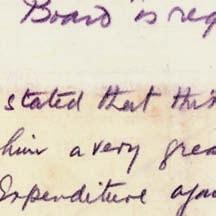 Board is req
stated that this
him a very grea
Expenditure again